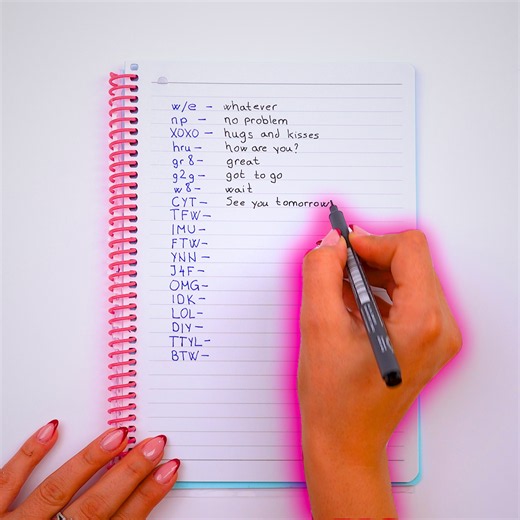 w/e - whatever
np - no problem
XOXO - hugs and kisses
hru - how are you?
gr8 - great
g2g - got to go
w8 - wait
CYT - See you tomorrow
TFW-
IMU-
FTW-
YNN-
J4F-
OMG-
IDK-
LOL-
DIY-
TTYL-
BTW-